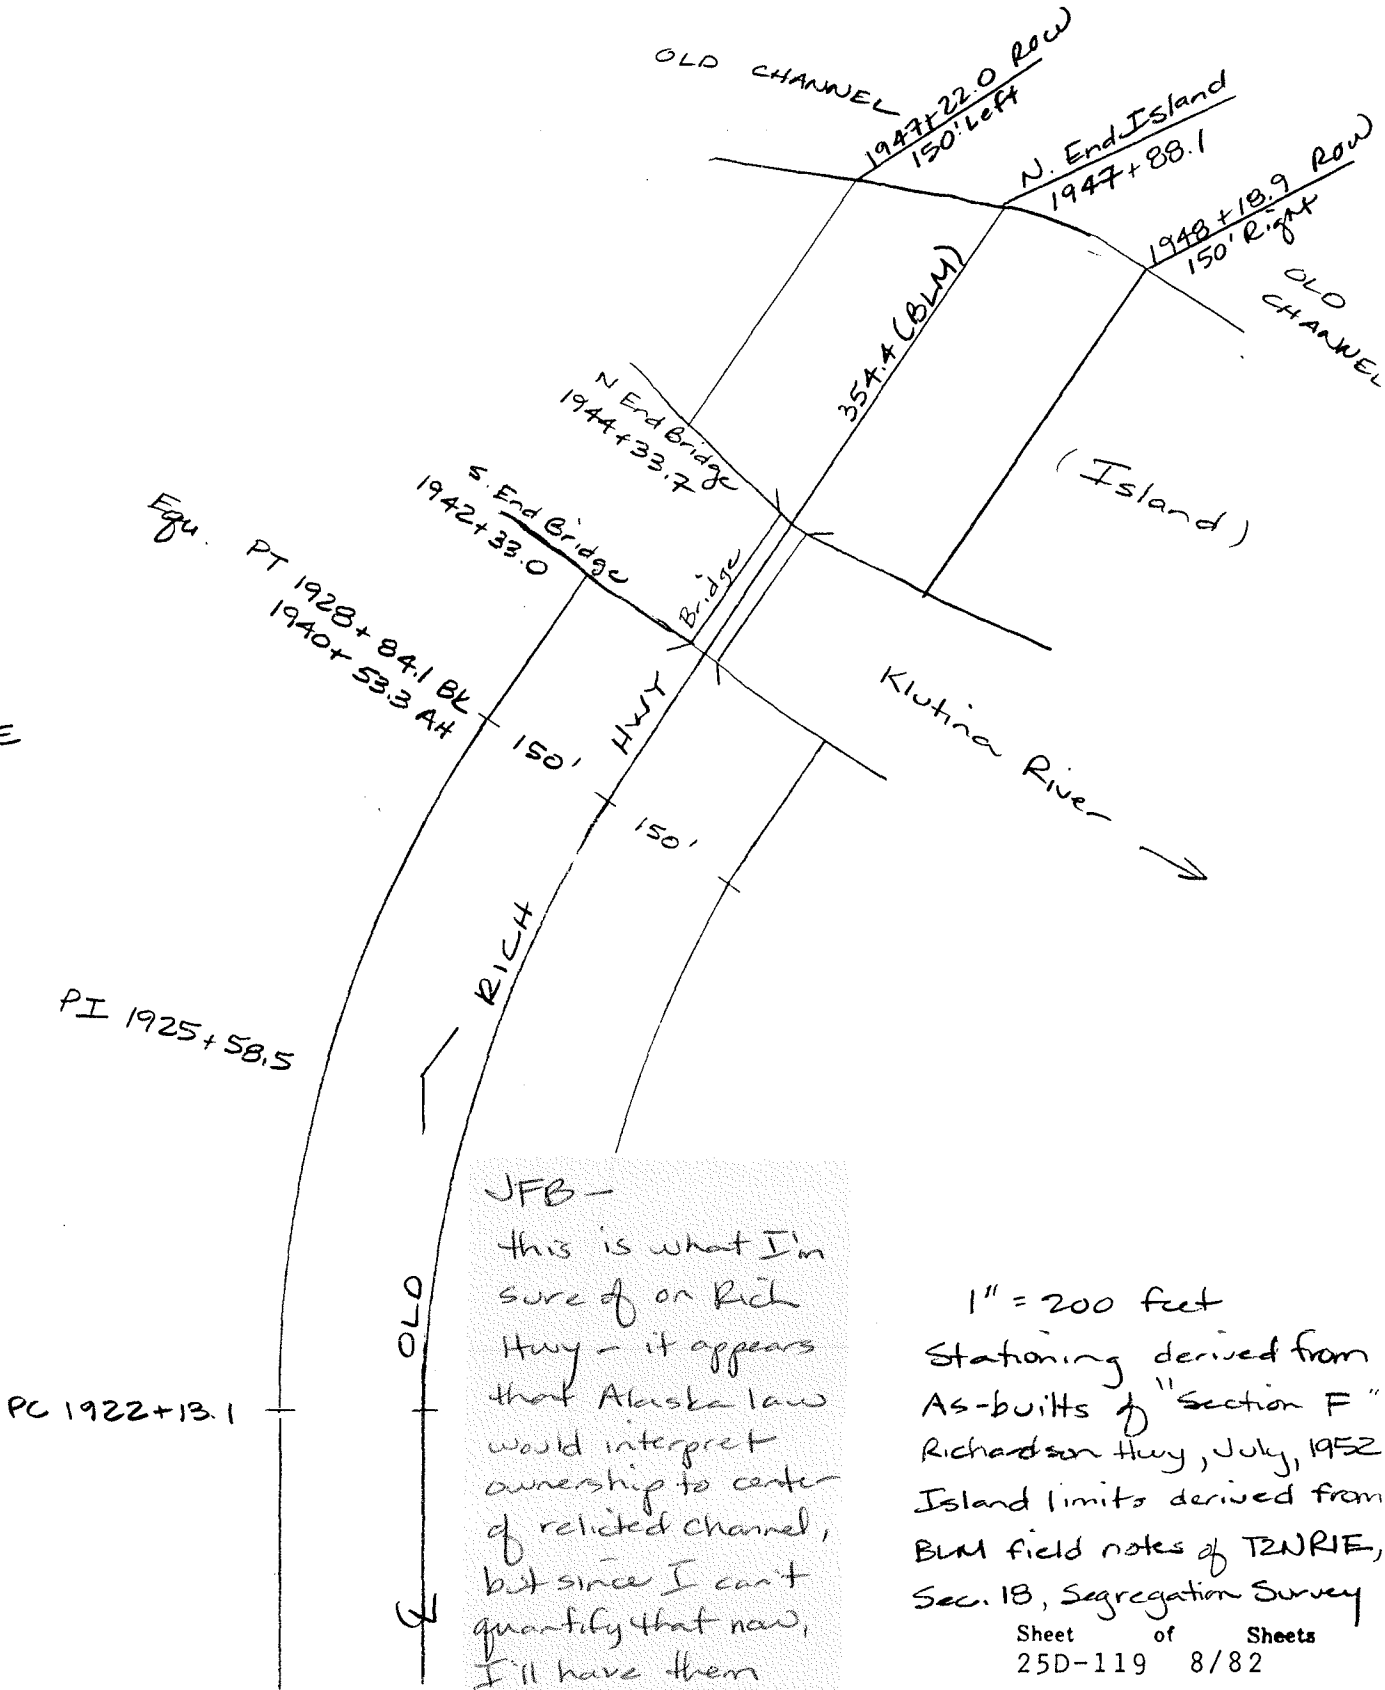 OLD CHANNEL
1947+22.0 ROW
150' Left
N. End Island
1947+88.1
1948+18.9 ROW
150' Right
OLD
CHANNEL
354.4 (BLM)
(Island)
N End Bridge
1944+33.7
S. End Bridge
1942+33.0
Bridge
Equ. PT 1928+84.1 BK
1940+53.3 AH
E
150'
HWY
150'
Klutina River
RICH
PI 1925+58.5
OLD
PC 1922+13.1
℄
JFB-
this is what I'm
sure of on Rich
Hwy - it appears
that Alaska law
would interpret
ownership to center
of relicted channel,
but since I can't
quantify that now,
I'll have them
1" = 200 feet
Stationing derived from
As-builts of "Section F"
Richardson Hwy, July, 1952
Island limits derived from
BLM field notes of T2NR1E,
Sec. 18, Segregation Survey
Sheet of Sheets
25D-119 8/82